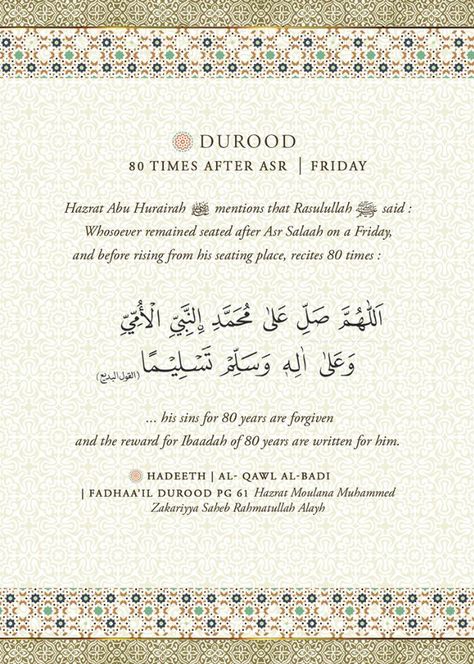 DUROOD
80 TIMES AFTER ASR | FRIDAY
Hazrat Abu Hurairah mentions that Rasulullah ﷺ said :
Whosoever remained seated after Asr Salaah on a Friday,
and before rising from his seating place, recites 80 times :
اَللّٰهُمَّ صَلِّ عَلٰى مُحَمَّدِ إِلنَّبِيِّ الْأُمِّيِّ
وَعَلٰى اٰلِهٖ وَسَلِّمْ تَسْلِيْمًا (القول البديع)
... his sins for 80 years are forgiven
and the reward for Ibaadah of 80 years are written for him.
HADEETH | AL- QAWL AL-BADI
| FADHAA'IL DUROOD PG 61 Hazrat Moulana Muhammed
Zakariyya Saheb Rahmatullah Alayh